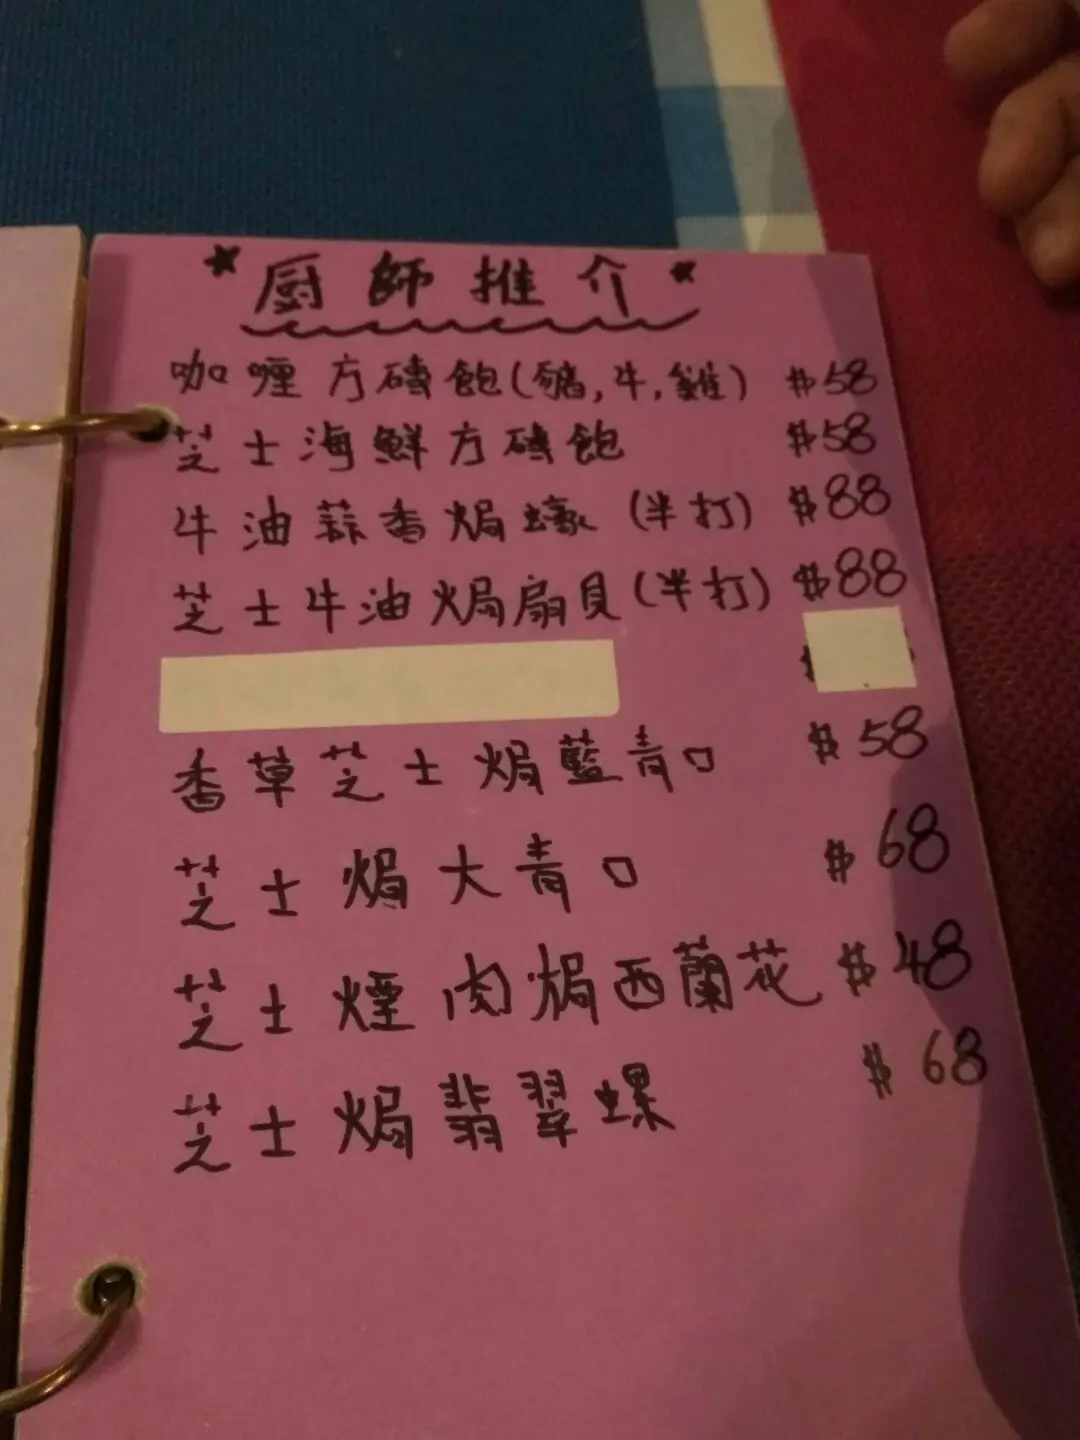 *廚師推介*
咖喱方磚飽(豬,牛,雞) $58
芝士海鮮方磚飽 $58
牛油蒜香焗蠔(半打) $88
芝士牛油焗扇貝(半打) $88
香草芝士焗藍青口 $58
芝士焗大青口 $68
芝士煙肉焗西蘭花 $48
芝士焗翡翠螺 $68